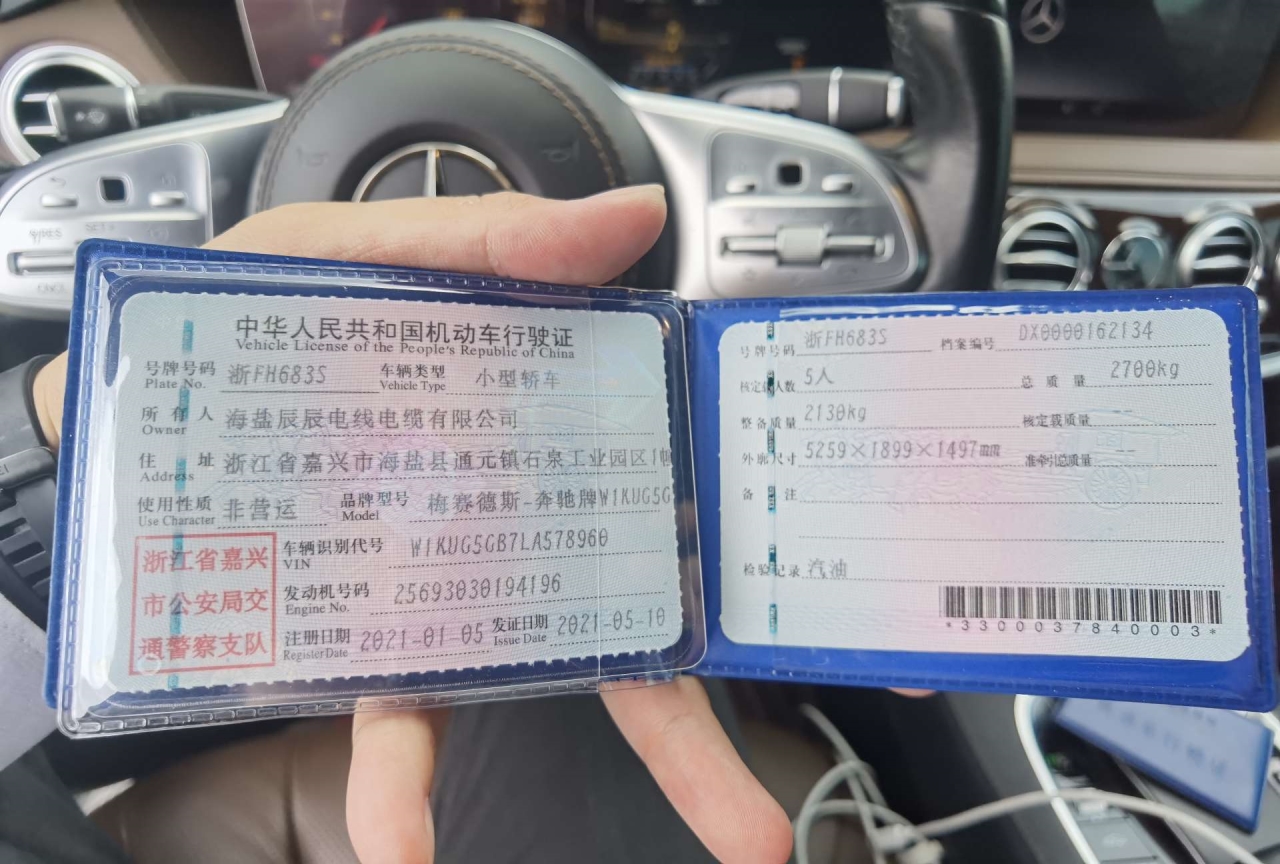 中华人民共和国机动车行驶证
Vehicle License of the People's Republic of China
号牌号码 浙FH683S 车辆类型 小型轿车
Plate No. Vehicle Type
所有人 海盐辰辰电线电缆有限公司
Owner
住址 浙江省嘉兴市海盐县通元镇石泉工业园区1幢
Address
使用性质 非营运 品牌型号 梅赛德斯-奔驰牌W1KUG5G
Use Character Model
浙江省嘉兴
市公安局交
通警察支队
车辆识别代号 W1KUG5GB7LA578960
VIN
发动机号码 25693030194196
Engine No.
注册日期 2021-01-05 发证日期 2021-05-10
Register Date Issue Date
号牌号码 浙FH683S 档案编号 DX0000162134
核定载人数 5人 总质量 2700kg
整备质量 2130kg 核定载质量 --
外廓尺寸 5259×1899×1497mm 准牵引总质量 --
备注
检验记录 汽油
*3300037840003*